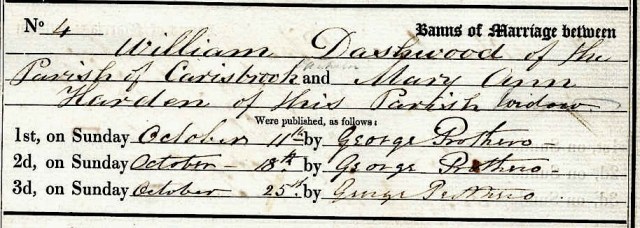 No 4 Banns of Marriage between
William Dashwood of the
Parish of Carisbrook and Mary Ann
Harden of this Parish widow
Were published, as follows:
1st, on Sunday October 11th by George Prothero
2d, on Sunday October 18th by George Prothero
3d, on Sunday October 25th by George Prothero